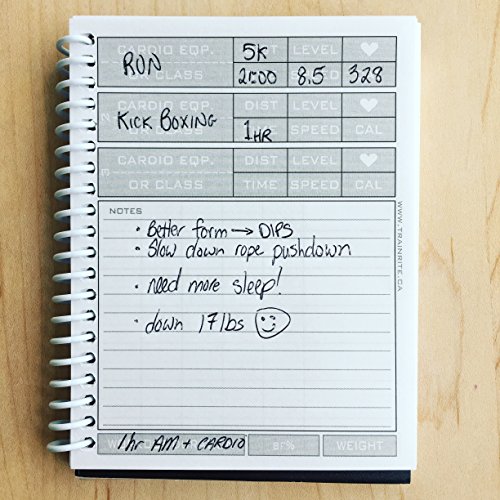 CARDIO EQP. DIST LEVEL
RUN 5K
OR CLASS 2500 8.5 328
2 CARDIO EQP. DIST LEVEL
KICK BOXING 1HR
OR CLASS SPEED CAL
3 CARDIO EQP. DIST LEVEL
OR CLASS TIME SPEED CAL
NOTES
• Better form → DIPS
• Slow down rope pushdown
• need more sleep!
• down 17lbs
1hr AM + CARDIO BF% WEIGHT
WWW.TRAINRITE.CA